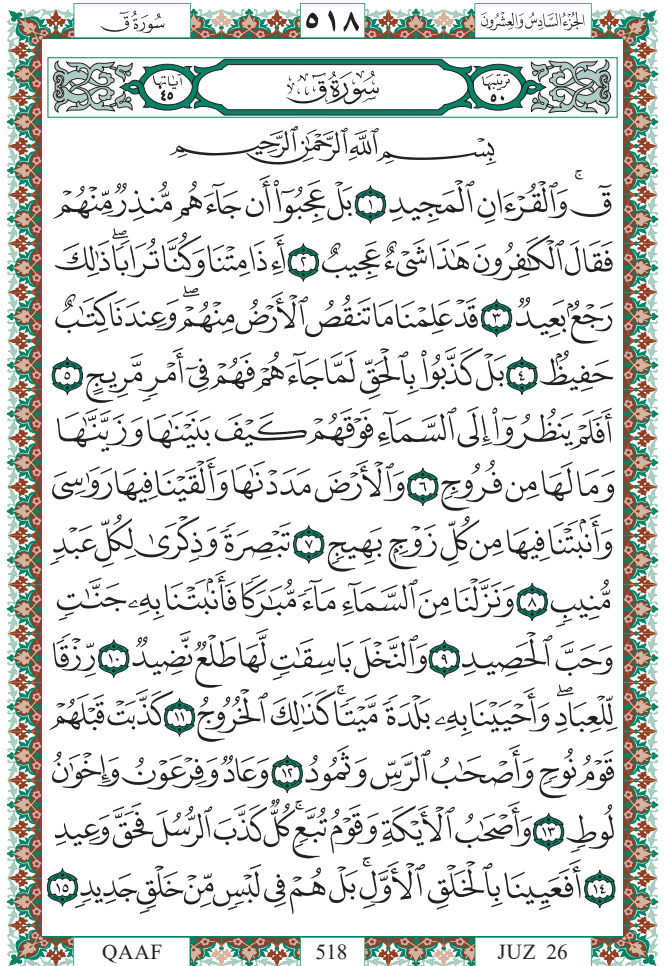 سُورَةُ قٓ ٥١٨ الجُزْءُ السَّادِسُ وَالعِشْرُونَ
آيَاتُهَا ٤٥ سُورَةُ قٓ تَرْتِيبُهَا ٥٠
بِسْمِ ٱللَّهِ ٱلرَّحْمَٰنِ ٱلرَّحِيمِ
قٓۚ وَٱلْقُرْءَانِ ٱلْمَجِيدِ ١ بَلْ عَجِبُوٓا۟ أَن جَآءَهُم مُّنذِرٌ مِّنْهُمْ
فَقَالَ ٱلْكَٰفِرُونَ هَٰذَا شَىْءٌ عَجِيبٌ ٢ أَءِذَا مِتْنَا وَكُنَّا تُرَابًاۖ ذَٰلِكَ
رَجْعٌۢ بَعِيدٌ ٣ قَدْ عَلِمْنَا مَا تَنقُصُ ٱلْأَرْضُ مِنْهُمْۖ وَعِندَنَا كِتَٰبٌ
حَفِيظٌۢ ٤ بَلْ كَذَّبُوا۟ بِٱلْحَقِّ لَمَّا جَآءَهُمْ فَهُمْ فِىٓ أَمْرٍ مَّرِيجٍ ٥
أَفَلَمْ يَنظُرُوٓا۟ إِلَى ٱلسَّمَآءِ فَوْقَهُمْ كَيْفَ بَنَيْنَٰهَا وَزَيَّنَّٰهَا
وَمَا لَهَا مِن فُرُوجٍ ٦ وَٱلْأَرْضَ مَدَدْنَٰهَا وَأَلْقَيْنَا فِيهَا رَوَٰسِىَ
وَأَنۢبَتْنَا فِيهَا مِن كُلِّ زَوْجٍۭ بَهِيجٍ ٧ تَبْصِرَةً وَذِكْرَىٰ لِكُلِّ عَبْدٍ
مُّنِيبٍ ٨ وَنَزَّلْنَا مِنَ ٱلسَّمَآءِ مَآءً مُّبَٰرَكًا فَأَنۢبَتْنَا بِهِۦ جَنَّٰتٍ
وَحَبَّ ٱلْحَصِيدِ ٩ وَٱلنَّخْلَ بَاسِقَٰتٍ لَّهَا طَلْعٌ نَّضِيدٌ ١٠ رِّزْقًا
لِّلْعِبَادِۖ وَأَحْيَيْنَا بِهِۦ بَلْدَةً مَّيْتًاۚ كَذَٰلِكَ ٱلْخُرُوجُ ١١ كَذَّبَتْ قَبْلَهُمْ
قَوْمُ نُوحٍ وَأَصْحَٰبُ ٱلرَّسِّ وَثَمُودُ ١٢ وَعَادٌ وَفِرْعَوْنُ وَإِخْوَٰنُ
لُوطٍ ١٣ وَأَصْحَٰبُ ٱلْأَيْكَةِ وَقَوْمُ تُبَّعٍۚ كُلٌّ كَذَّبَ ٱلرُّسُلَ فَحَقَّ وَعِيدِ
١٤ أَفَعَيِينَا بِٱلْخَلْقِ ٱلْأَوَّلِۚ بَلْ هُمْ فِى لَبْسٍ مِّنْ خَلْقٍ جَدِيدٍ ١٥
QAAF 518 JUZ 26